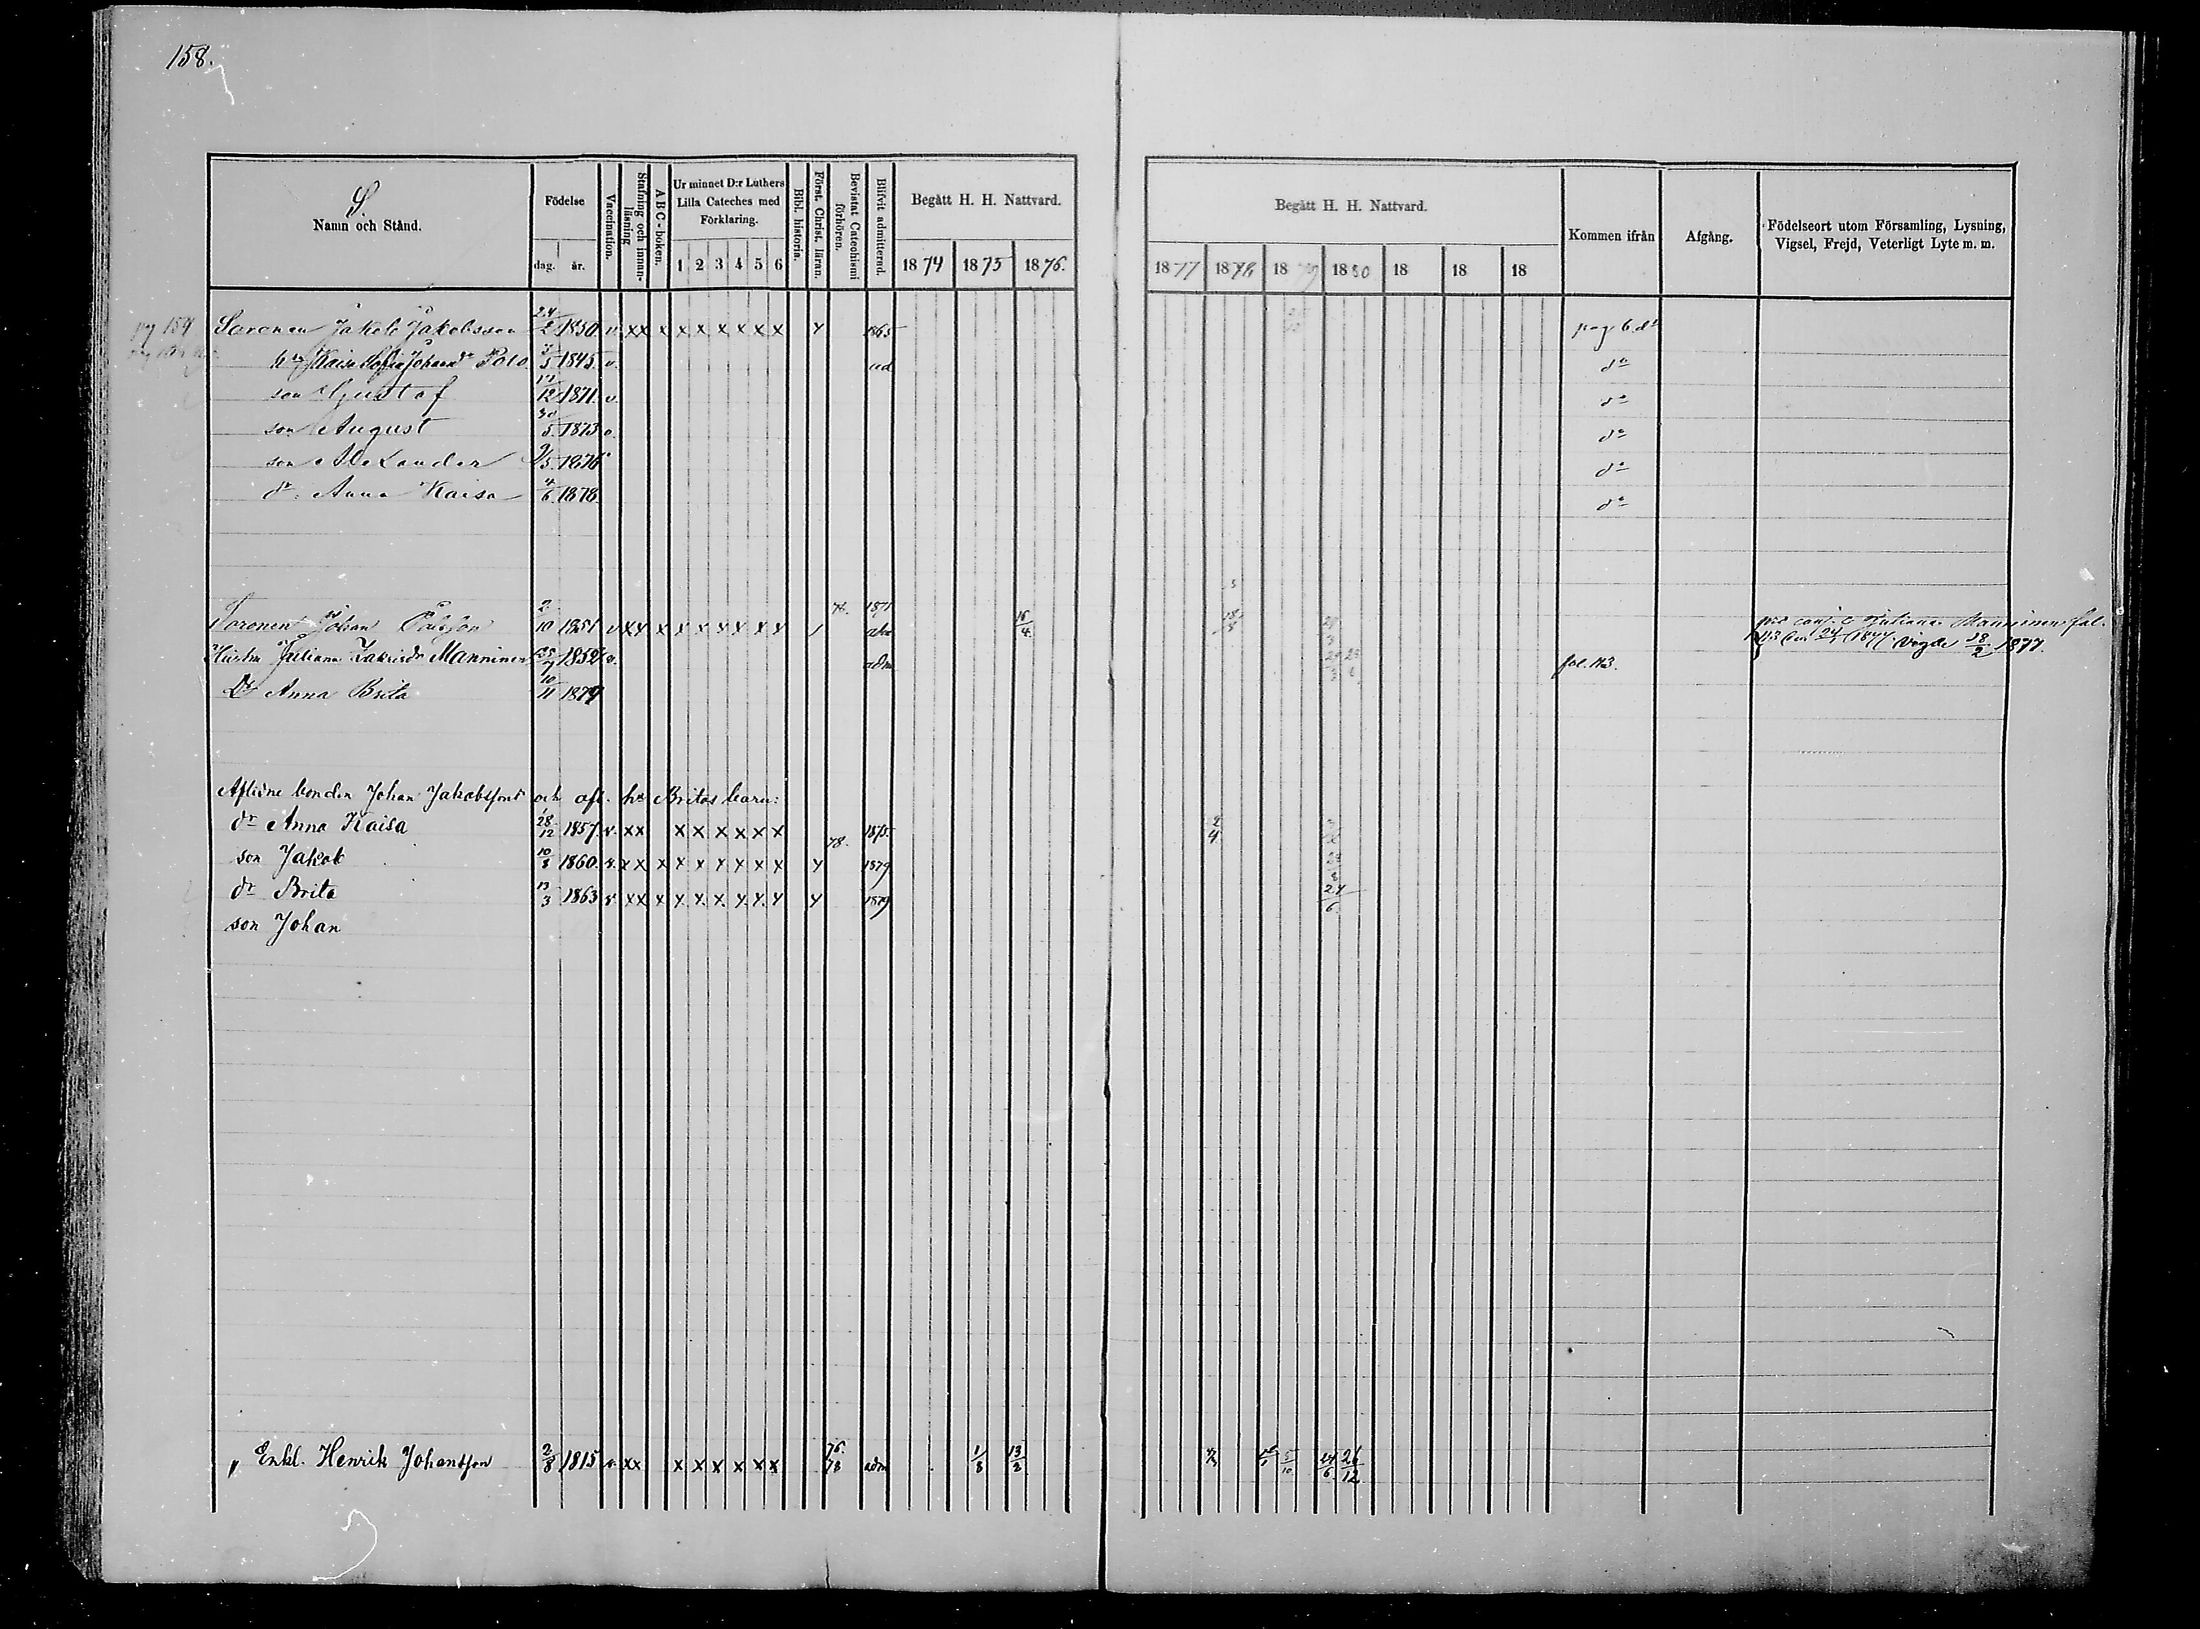 158.
S.
Namn och Stånd.
Födelse
dag. år.
Vaccination.
Stafning och innan-läsning
A B C - boken.
Ur minnet D:r Luthers Lilla Cateches med Förklaring.
1 2 3 4 5 6
Bibl. historia.
Först. Christ. läran.
Bevistat Catechismi förhören.
Blifvit admitterad.
Begått H. H. Nattvard.
1874 1875 1876.
Begått H. H. Nattvard.
1877 1878 1879 1880 18 18 18
Kommen ifrån
Afgång.
Födelseort utom Församling, Lysning, Vigsel, Frejd, Veterligt Lyte m. m.
pg 159 Soronen Jakob Jakobsson 24/2 1850 v. x x x x x x x x x x 1865 pag 6. do
Kaisa Sofia Johansdr Polo 5 1845 v. do
son Gustaf 17/12 1871. v. do
son August 30/5 1873 v. do
son Alexander 9/5 1876 do
dr. Anna Kaisa 4/6 1878 do
76. 1871
Soronen Johan 2/10 1851 v x x x x x x x x x adm 16/4
Hustru Juliana Manninen 1852 v. adm fol. 113.
Juliana Manninen fol.
113 den 24/1 1877. Vigde 18/2 1877.
Dr Anna Brita 10/11 1879
Aflidne bonden Johan Jakobssons och afl. hu Britas barn:
dr Anna Kaisa 28/12 1857. v. x x x x x x x x 1875. 2/4
78.
son Jakob 10/8 1860. v. x x x x x x x x x 1879
dr Brita 13/3 1863 v. x x x x x x x x x 1879 24/6
son Johan
Enkl. Henrik Johansson 2/8 1815 v. x x x x x x x x 76. 78 adm 1/8 13/2 24/6 26/12